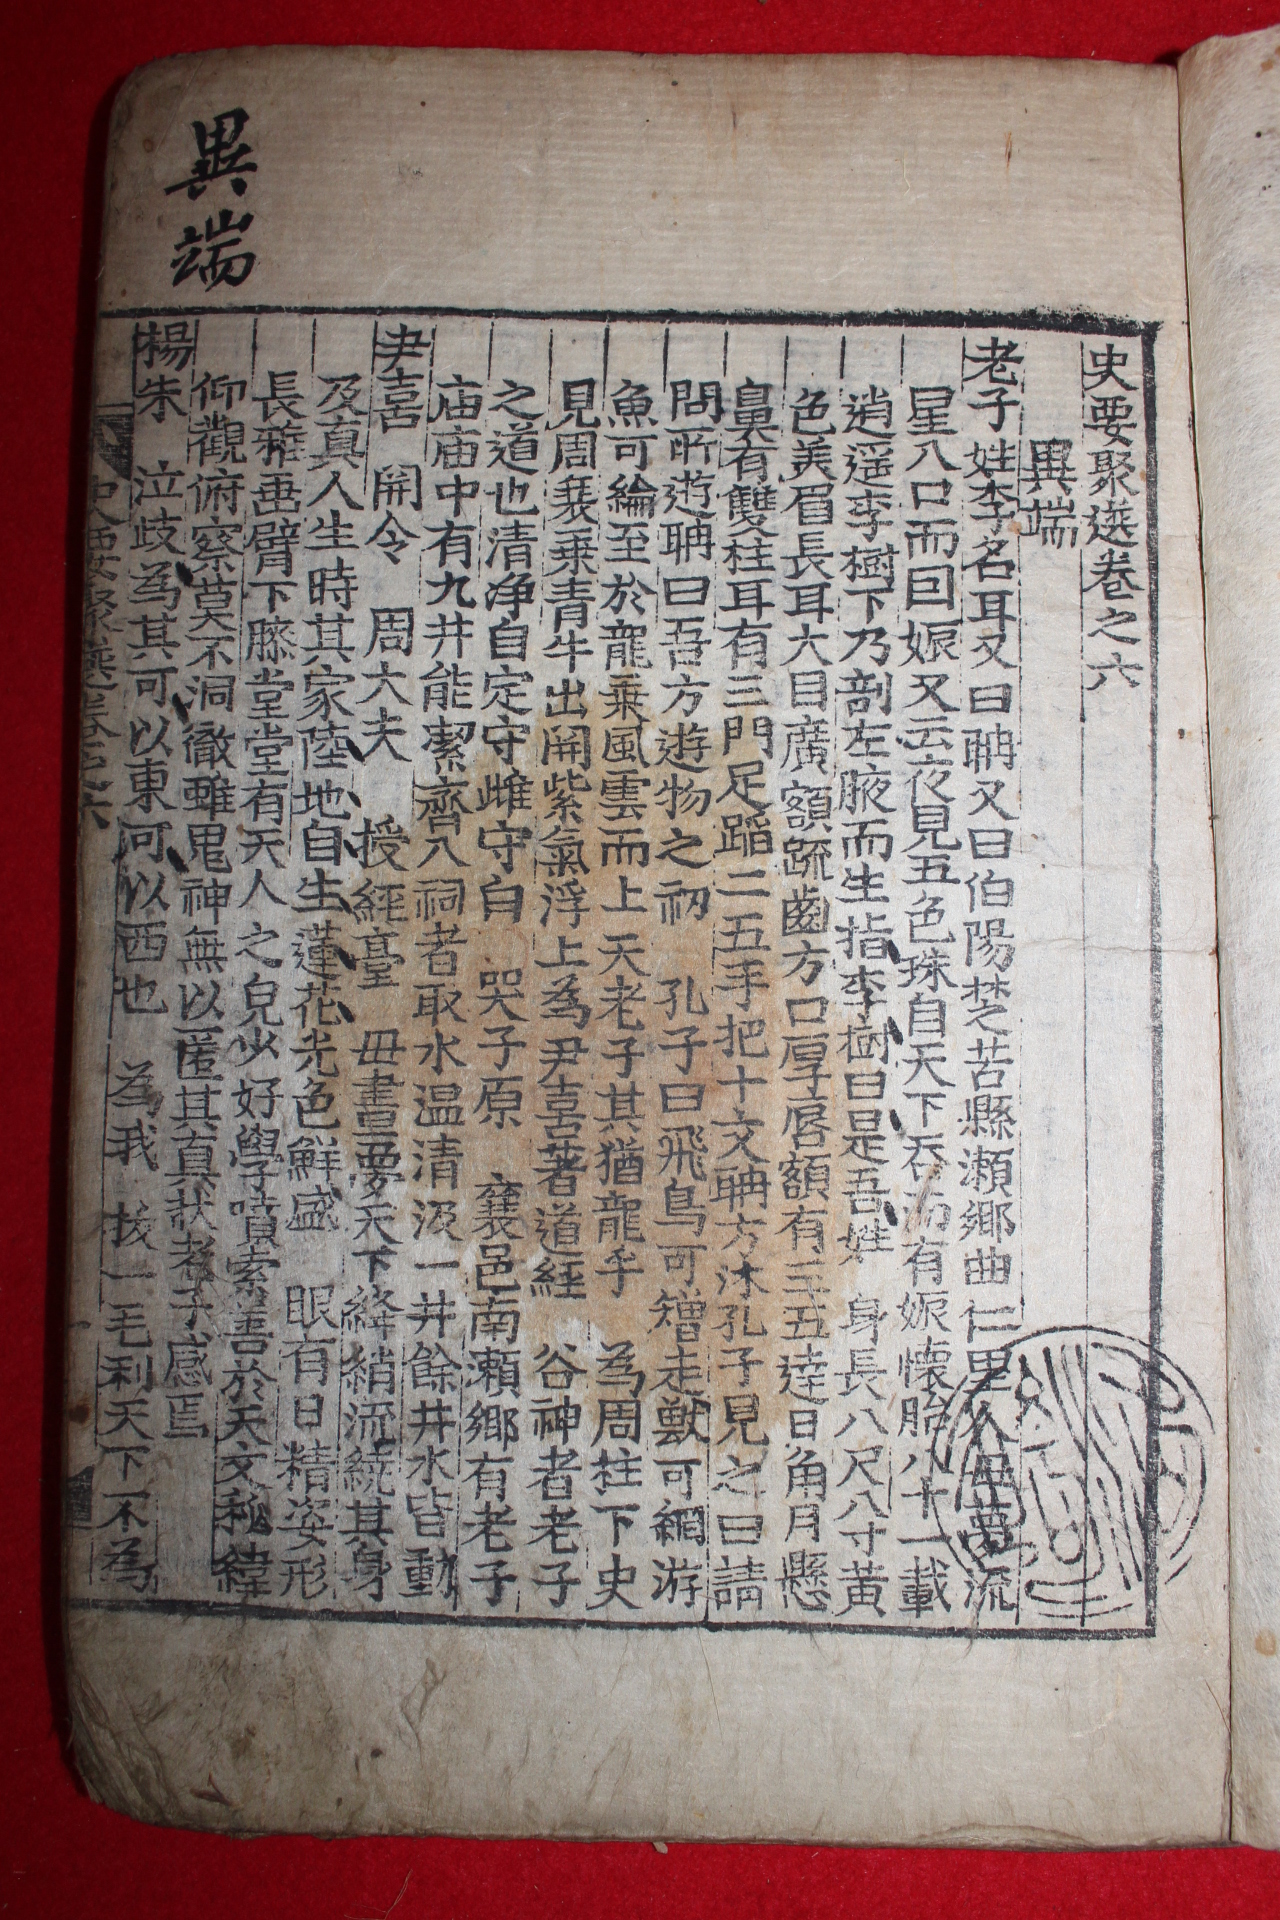 異端
史要聚選卷之六
異端
老子姓李名耳又曰聃又曰伯陽楚苦縣瀨鄉曲仁里人母夢流
星入口而因娠又云夜見五色珠自天下吞而有娠懷胎八十一載
逍遥李樹下乃剖左腋而生指李樹曰是吾姓 身長八尺八寸黃
色美眉長耳大目廣額疏齒方口厚唇額有三五達日角月懸
鼻有雙柱耳有三門足蹈二五手把十文聃方沐孔子見之曰請
問所遊聃曰吾方遊物之初 孔子曰飛鳥可矰走獸可網游
魚可綸至於龍乗風雲而上天老子其猶龍乎 為周柱下史
見周衰乗青牛出関紫氣浮上為尹喜著道經 谷神者老子
之道也清净自定守雌守白 哭子原 襄邑南瀨鄉有老子
庙庙中有九井能潔齊入祠者取水温清汲一井餘井水皆動
尹喜 関令 周大夫 授經臺 母晝夢天下絳綃流繞其身
及真人生時其家陸地自生蓮花光色鮮盛 眼有日精姿形
長雅垂臂下膝堂堂有天人之皃少好學墳索善於天文秘緯
仰觀俯察莫不洞徹雖鬼神無以匿其真狀老子感焉
楊朱 泣歧為其可以東可以西也 為我 拔一毛利天下不為
史要聚選卷之六
一